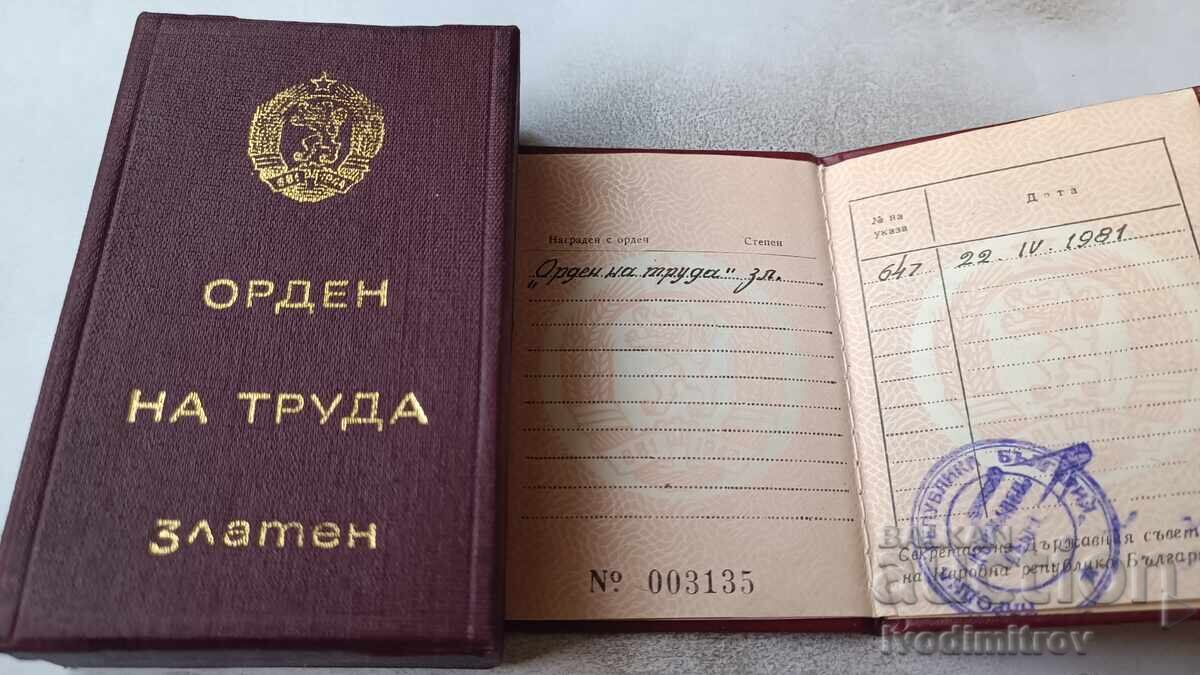 681 1944
ОРДЕН
НА ТРУДА
Златен
Награден с орден Степен
"Орден на труда" зл.
№ 003135
№ на указа Дата
647 22. IV. 1981
РЕПУБЛИКА БЪЛГАРИЯ
Секретар на Държавния съвет
на Народна република Българи
BALKAN
auction
Ivodimitrov